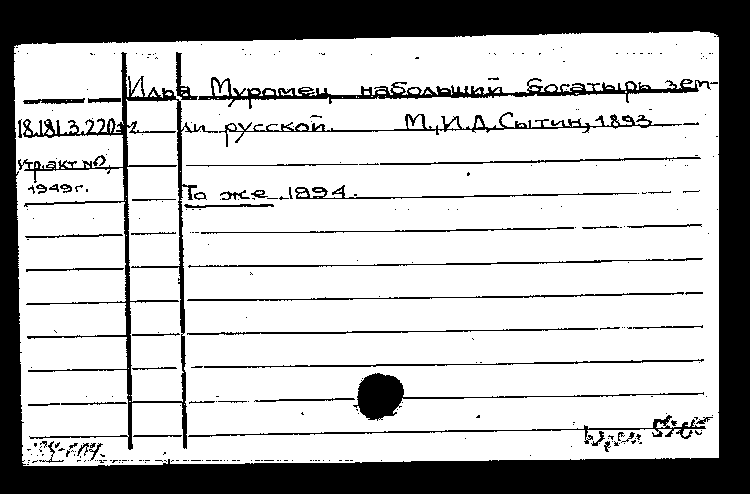 Илья Муромец, набольший богатырь зем-
18.181.3.220 ли русской. М., И.Д. Сытин, 1893
утр. акт №0,
1949 г. То же, 1894.